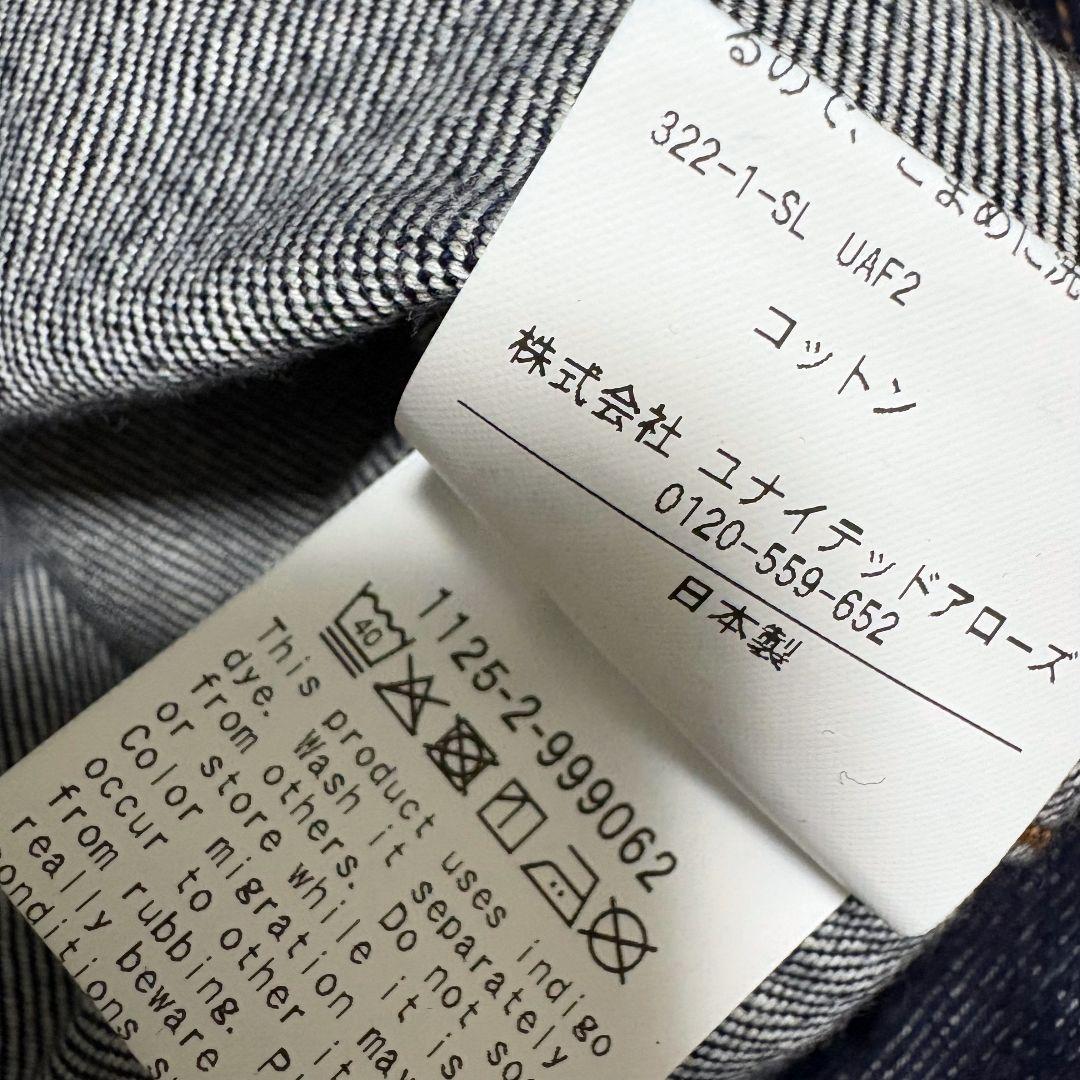 るので、こまめに洗
322-1-SL UAF2
コットン
株式会社 ユナイテッドアローズ
0120-559-652
日本製
1125-2-999062
40
This product uses indigo
dye. Wash it separately
from others. Do not so
or store while it is
Color migration may
occur to other it
from rubbing. Pl
really beware
onditions s